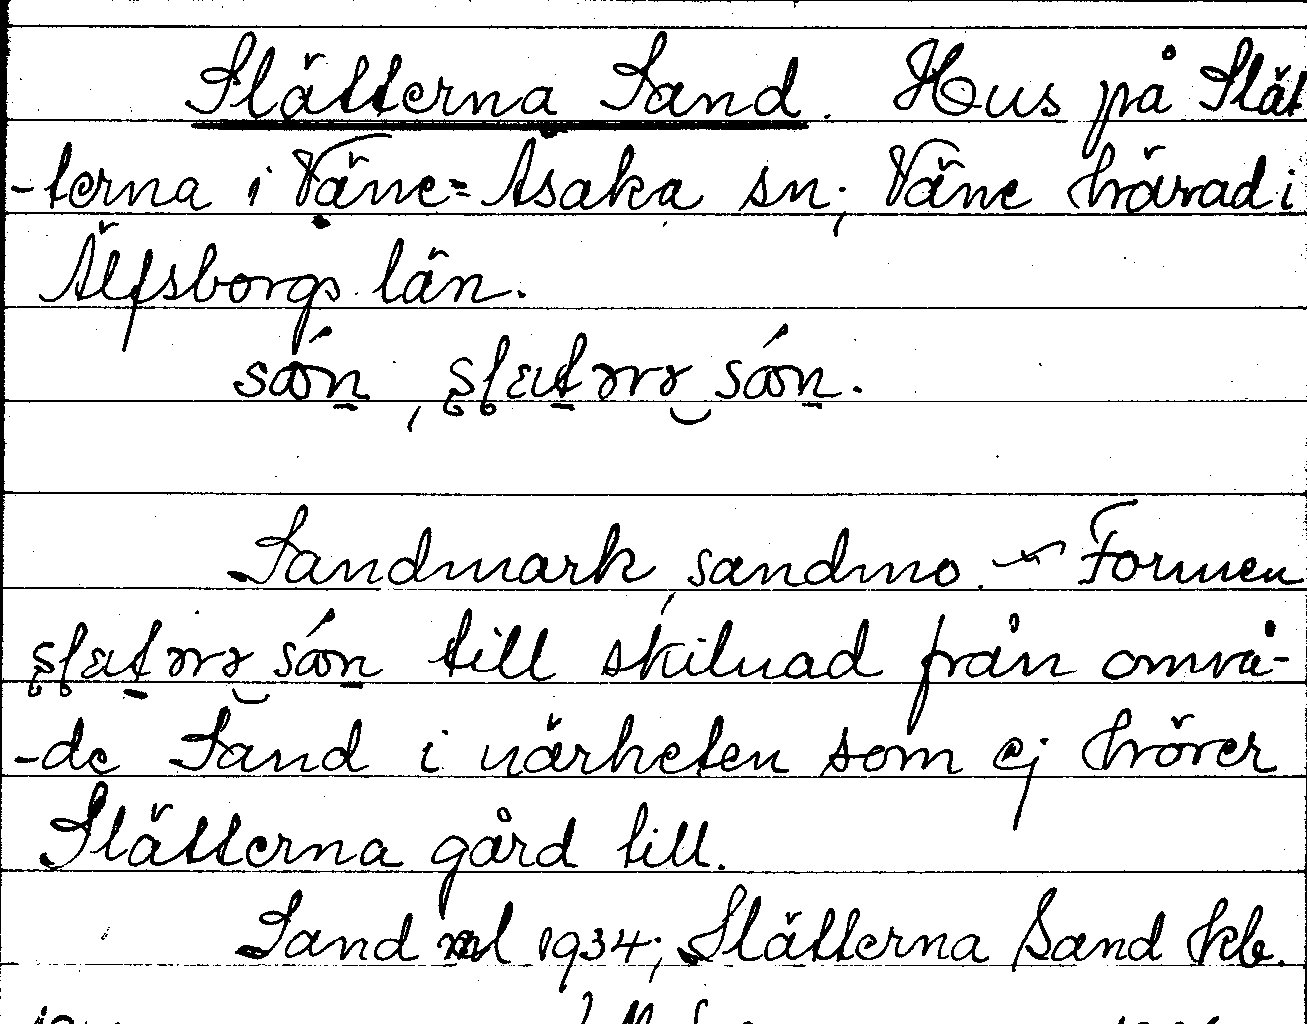 Slätterna Sand. Hus på Slät
-terna i Väne=Åsaka sn; Väne härad i
Älfsborgs län.
Sandmark, sandmo. – Formen
till skilnad från områ-
-de Sand i närheten som ej hörer
Slätterna gård till.
Sand ml 1934; Slätterna Sand kb.